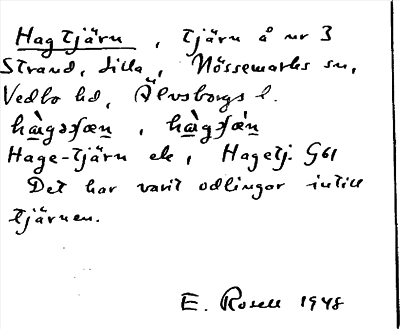 Hagtjärn, tjärn å nr 3
Strand, Lilla, Nössemarks sn,
Vedbo hd, Älvsborgs l.
hàgəʃæn, hàgʃæ̀n
Hage-tjärn ek, Hagetj. G61
Det har varit odlingar intill
tjärnen.
E. Rosell 1948